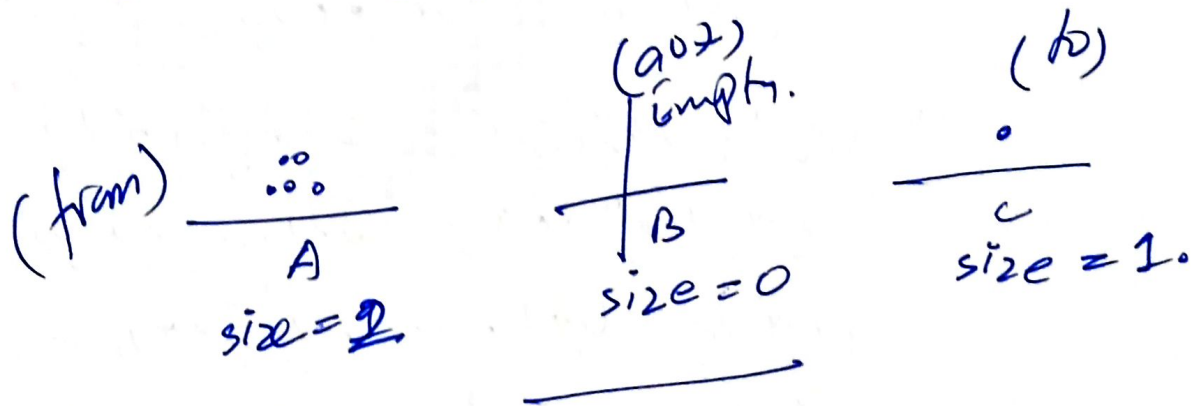 (from)
A
size = 2
(aux)
Empty.
B
size = 0
(to)
C
size = 1.